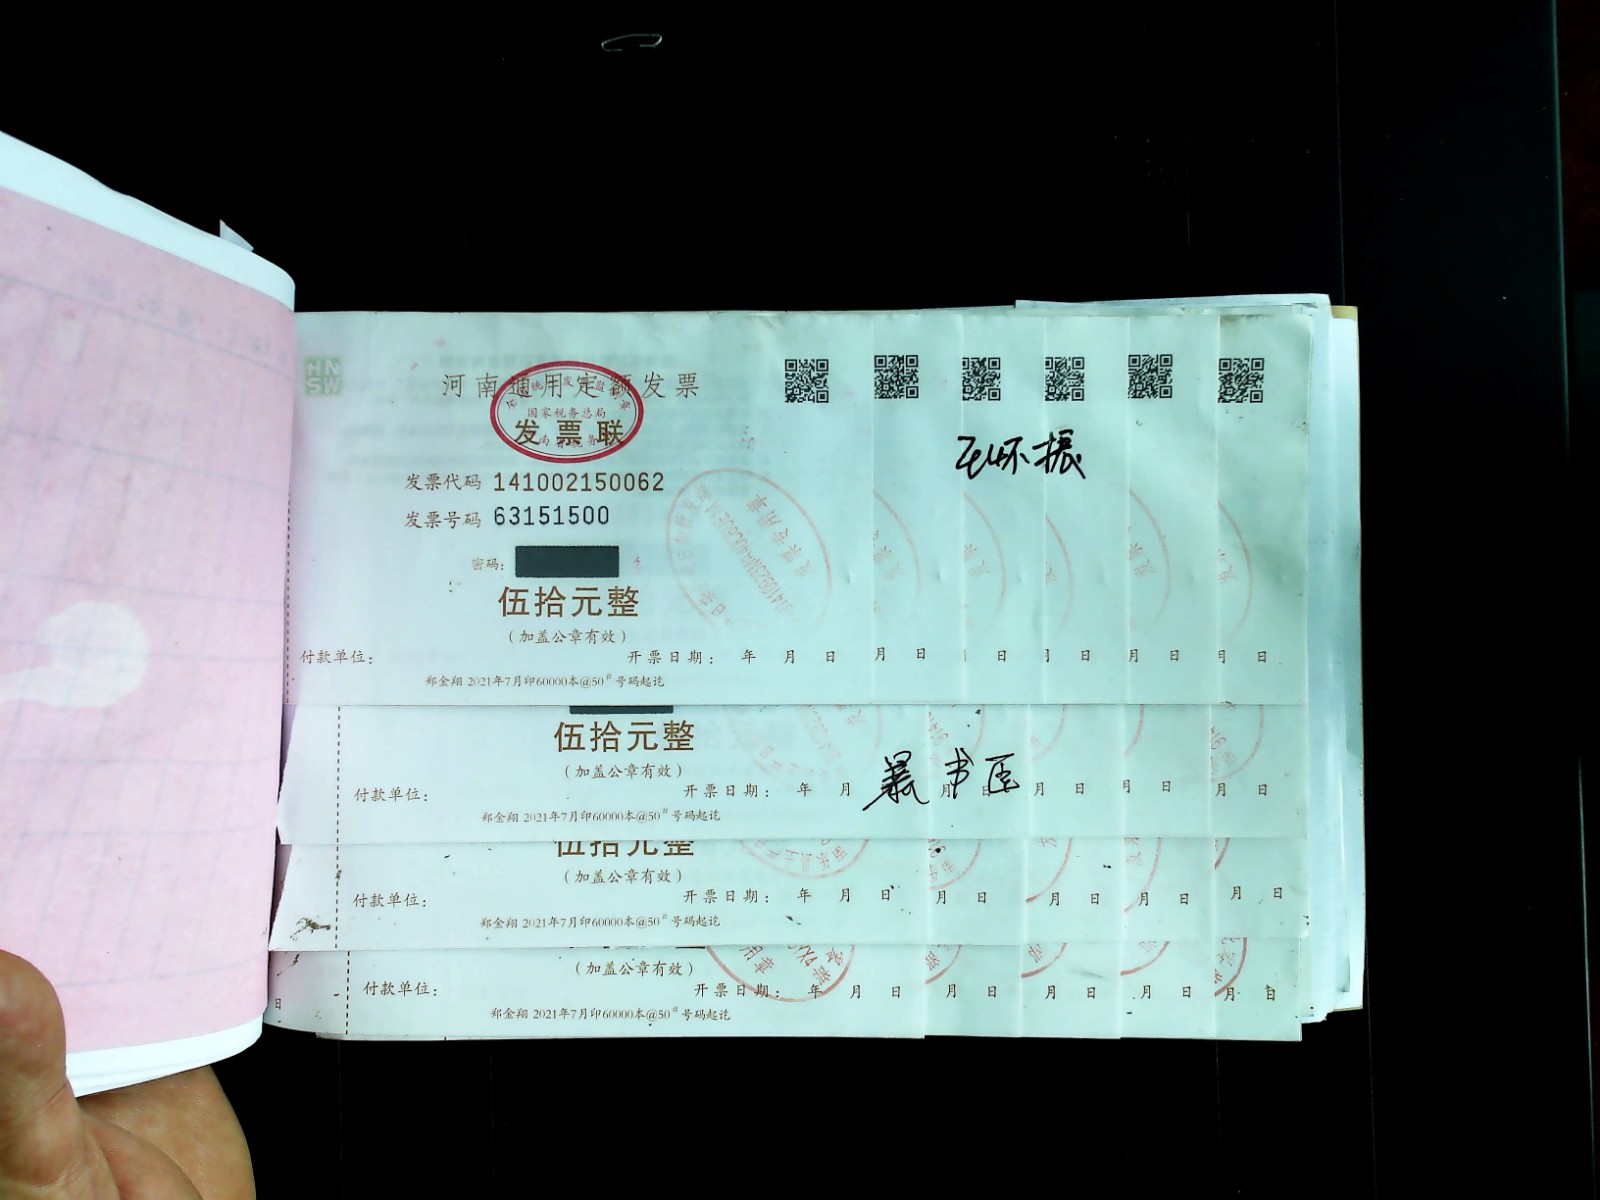 HN
SW
河南通用定额发票
国家税务总局
发票联
发票代码 141002150062
发票号码 63151500
密码:
伍拾元整
(加盖公章有效)
付款单位: 开票日期: 年 月 日 月 日 日 月 日 月 日 月 日
郑金翔 2021年7月印60000本@50# 号码起讫
发票专用章
怀振
伍拾元整
(加盖公章有效)
付款单位: 开票日期: 年 月 月 日 月 日 月 日 月 日
郑金翔 2021年7月印60000本@50# 号码起讫
书
伍拾元整
(加盖公章有效)
付款单位: 开票日期: 年 月 日 月 日 月 日 月 日 月 日
郑金翔 2021年7月印60000本@50# 号码起讫
(加盖公章有效)
付款单位: 开票日期: 年 月 日 月 日 月 日 月 日 月 日
郑金翔 2021年7月印60000本@50# 号码起讫